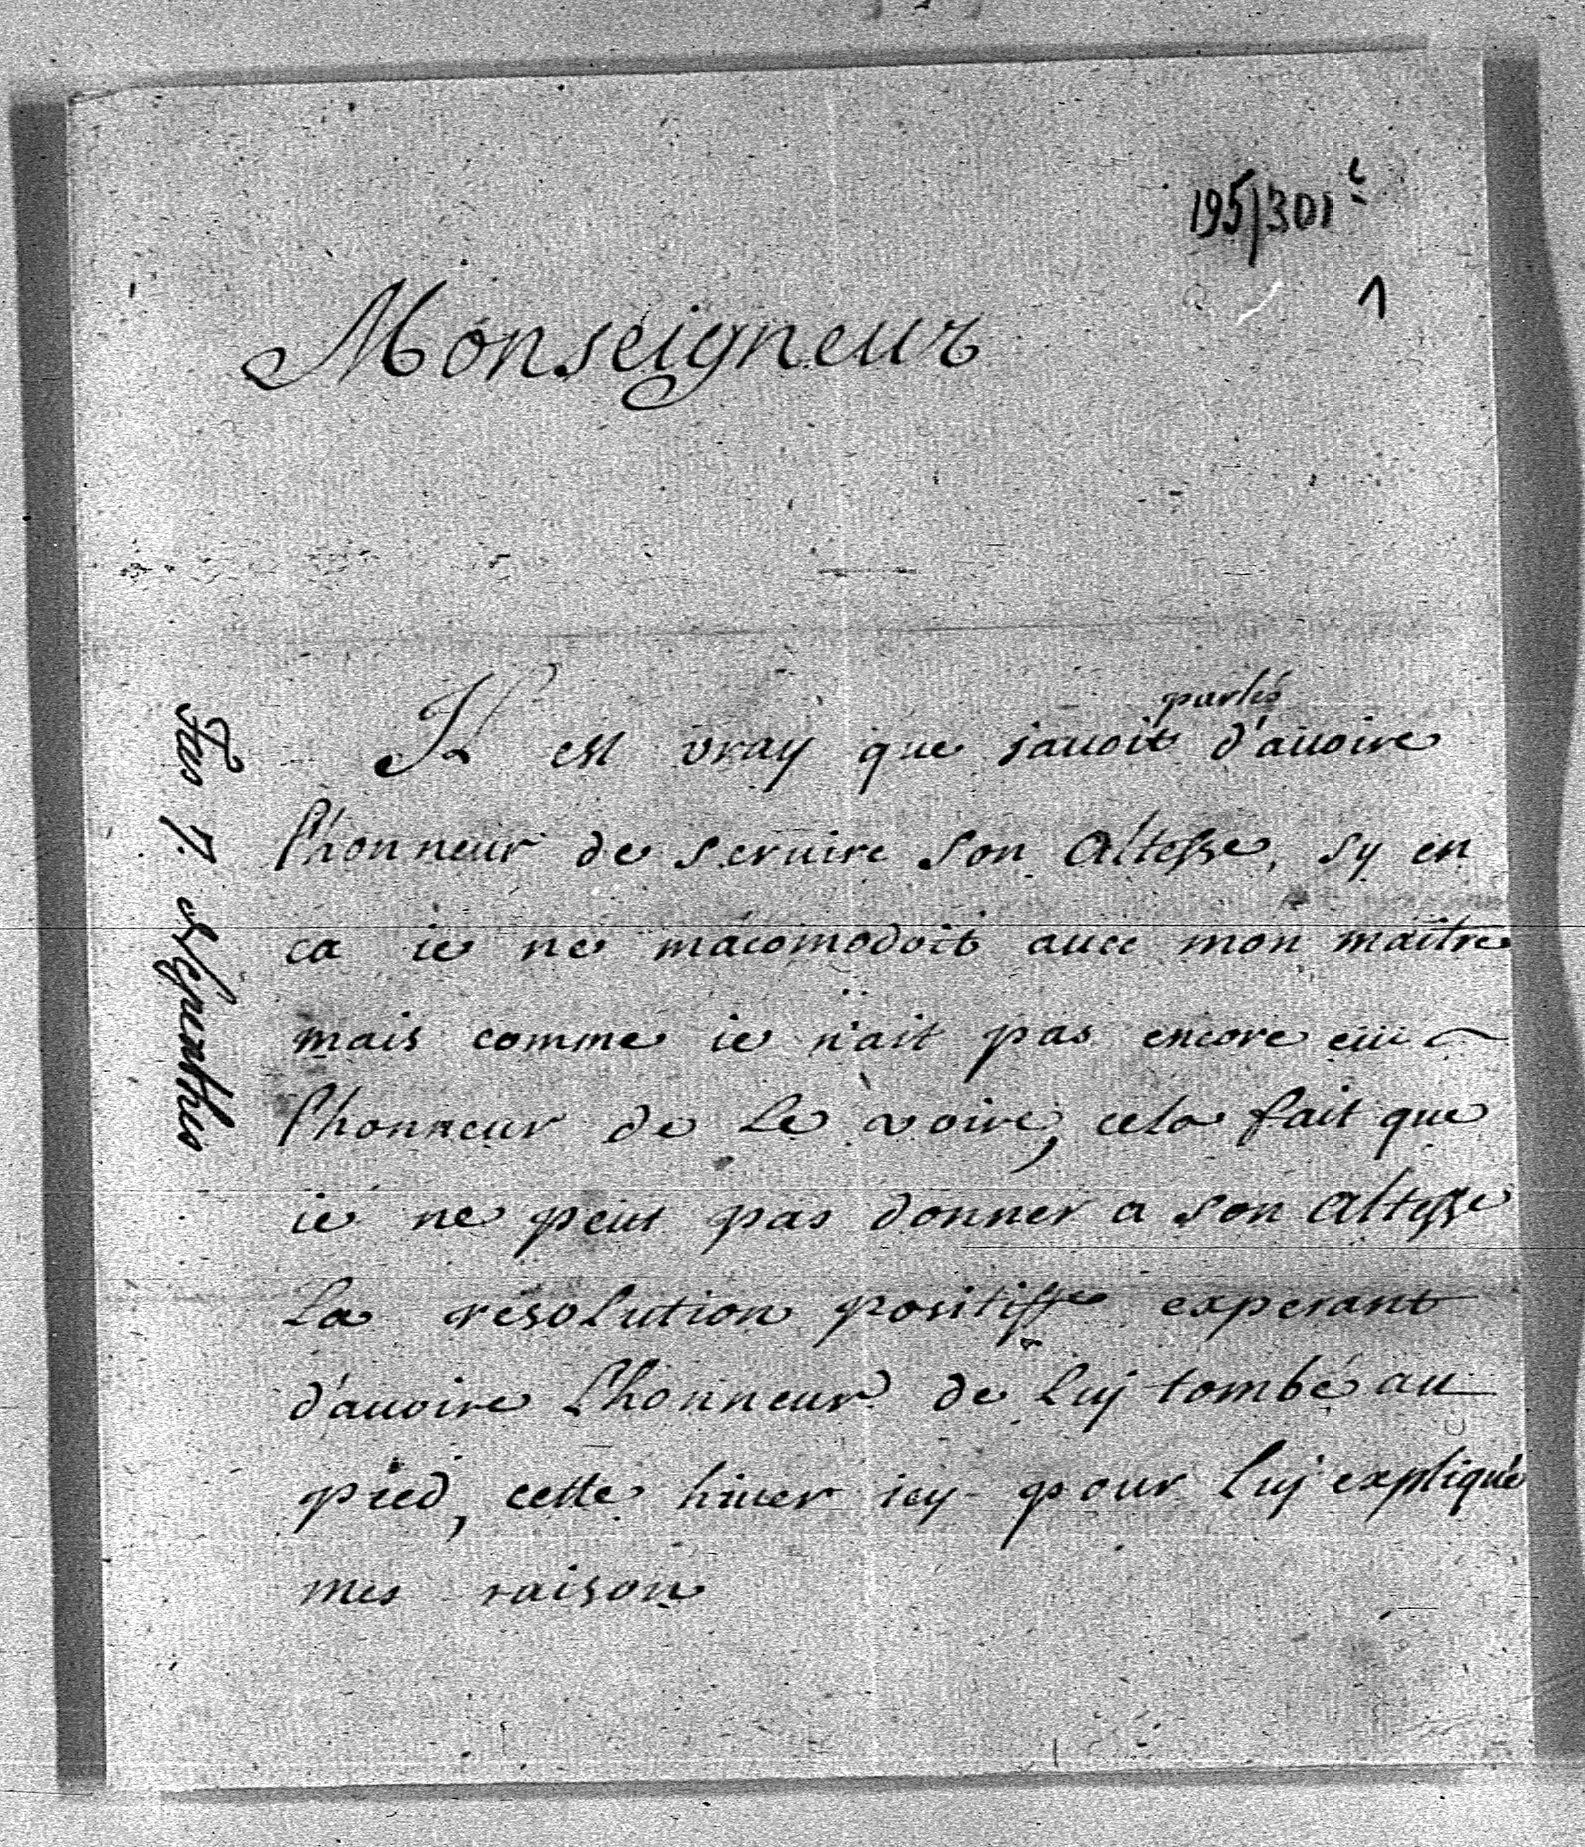 195/301
1
Monseigneur
parlés
Il est vray que javoit d'auoire
l'honneur de seruire son Altesse, sy en
ca ie ne m'acomodoit auec mon maître
mais comme ie n'ait pas encore eüe
l'honneur de Le voire, cela fait que
ie ne peut pas donner a son Altesse
La résolution positiffe experant
d'auoire L'honneur de Luy tombé au
pied, cette hiuer icy pour Luy expliqué
mes raison